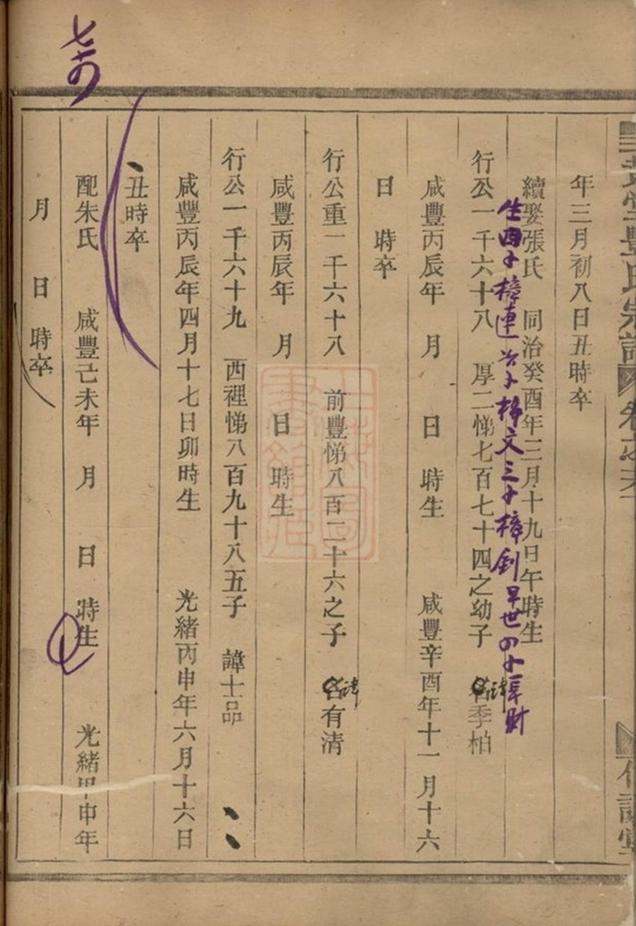 年三月初八日丑時卒
續娶張氏 同治癸酉年三月十九日午時生
生四子樟連 次子樟文三子樟釗早世四子樟財
行公一千六十八 厚二悌七百七十四之幼子 諱季柏
咸豐丙辰年 月 日 時生 咸豐辛酉年十一月十六
日 時卒
行公重一千六十八 前豐悌八百二十六之子 諱有清
咸豐丙辰年 月 日 時生
行公一千六十九 西裡悌八百九十八五子 諱士品
咸豐丙辰年四月十七日卯時生 光緒丙申年六月十六日
丑時卒
配朱氏 咸豐己未年 月 日 時生 光緒甲申年
月 日 時卒